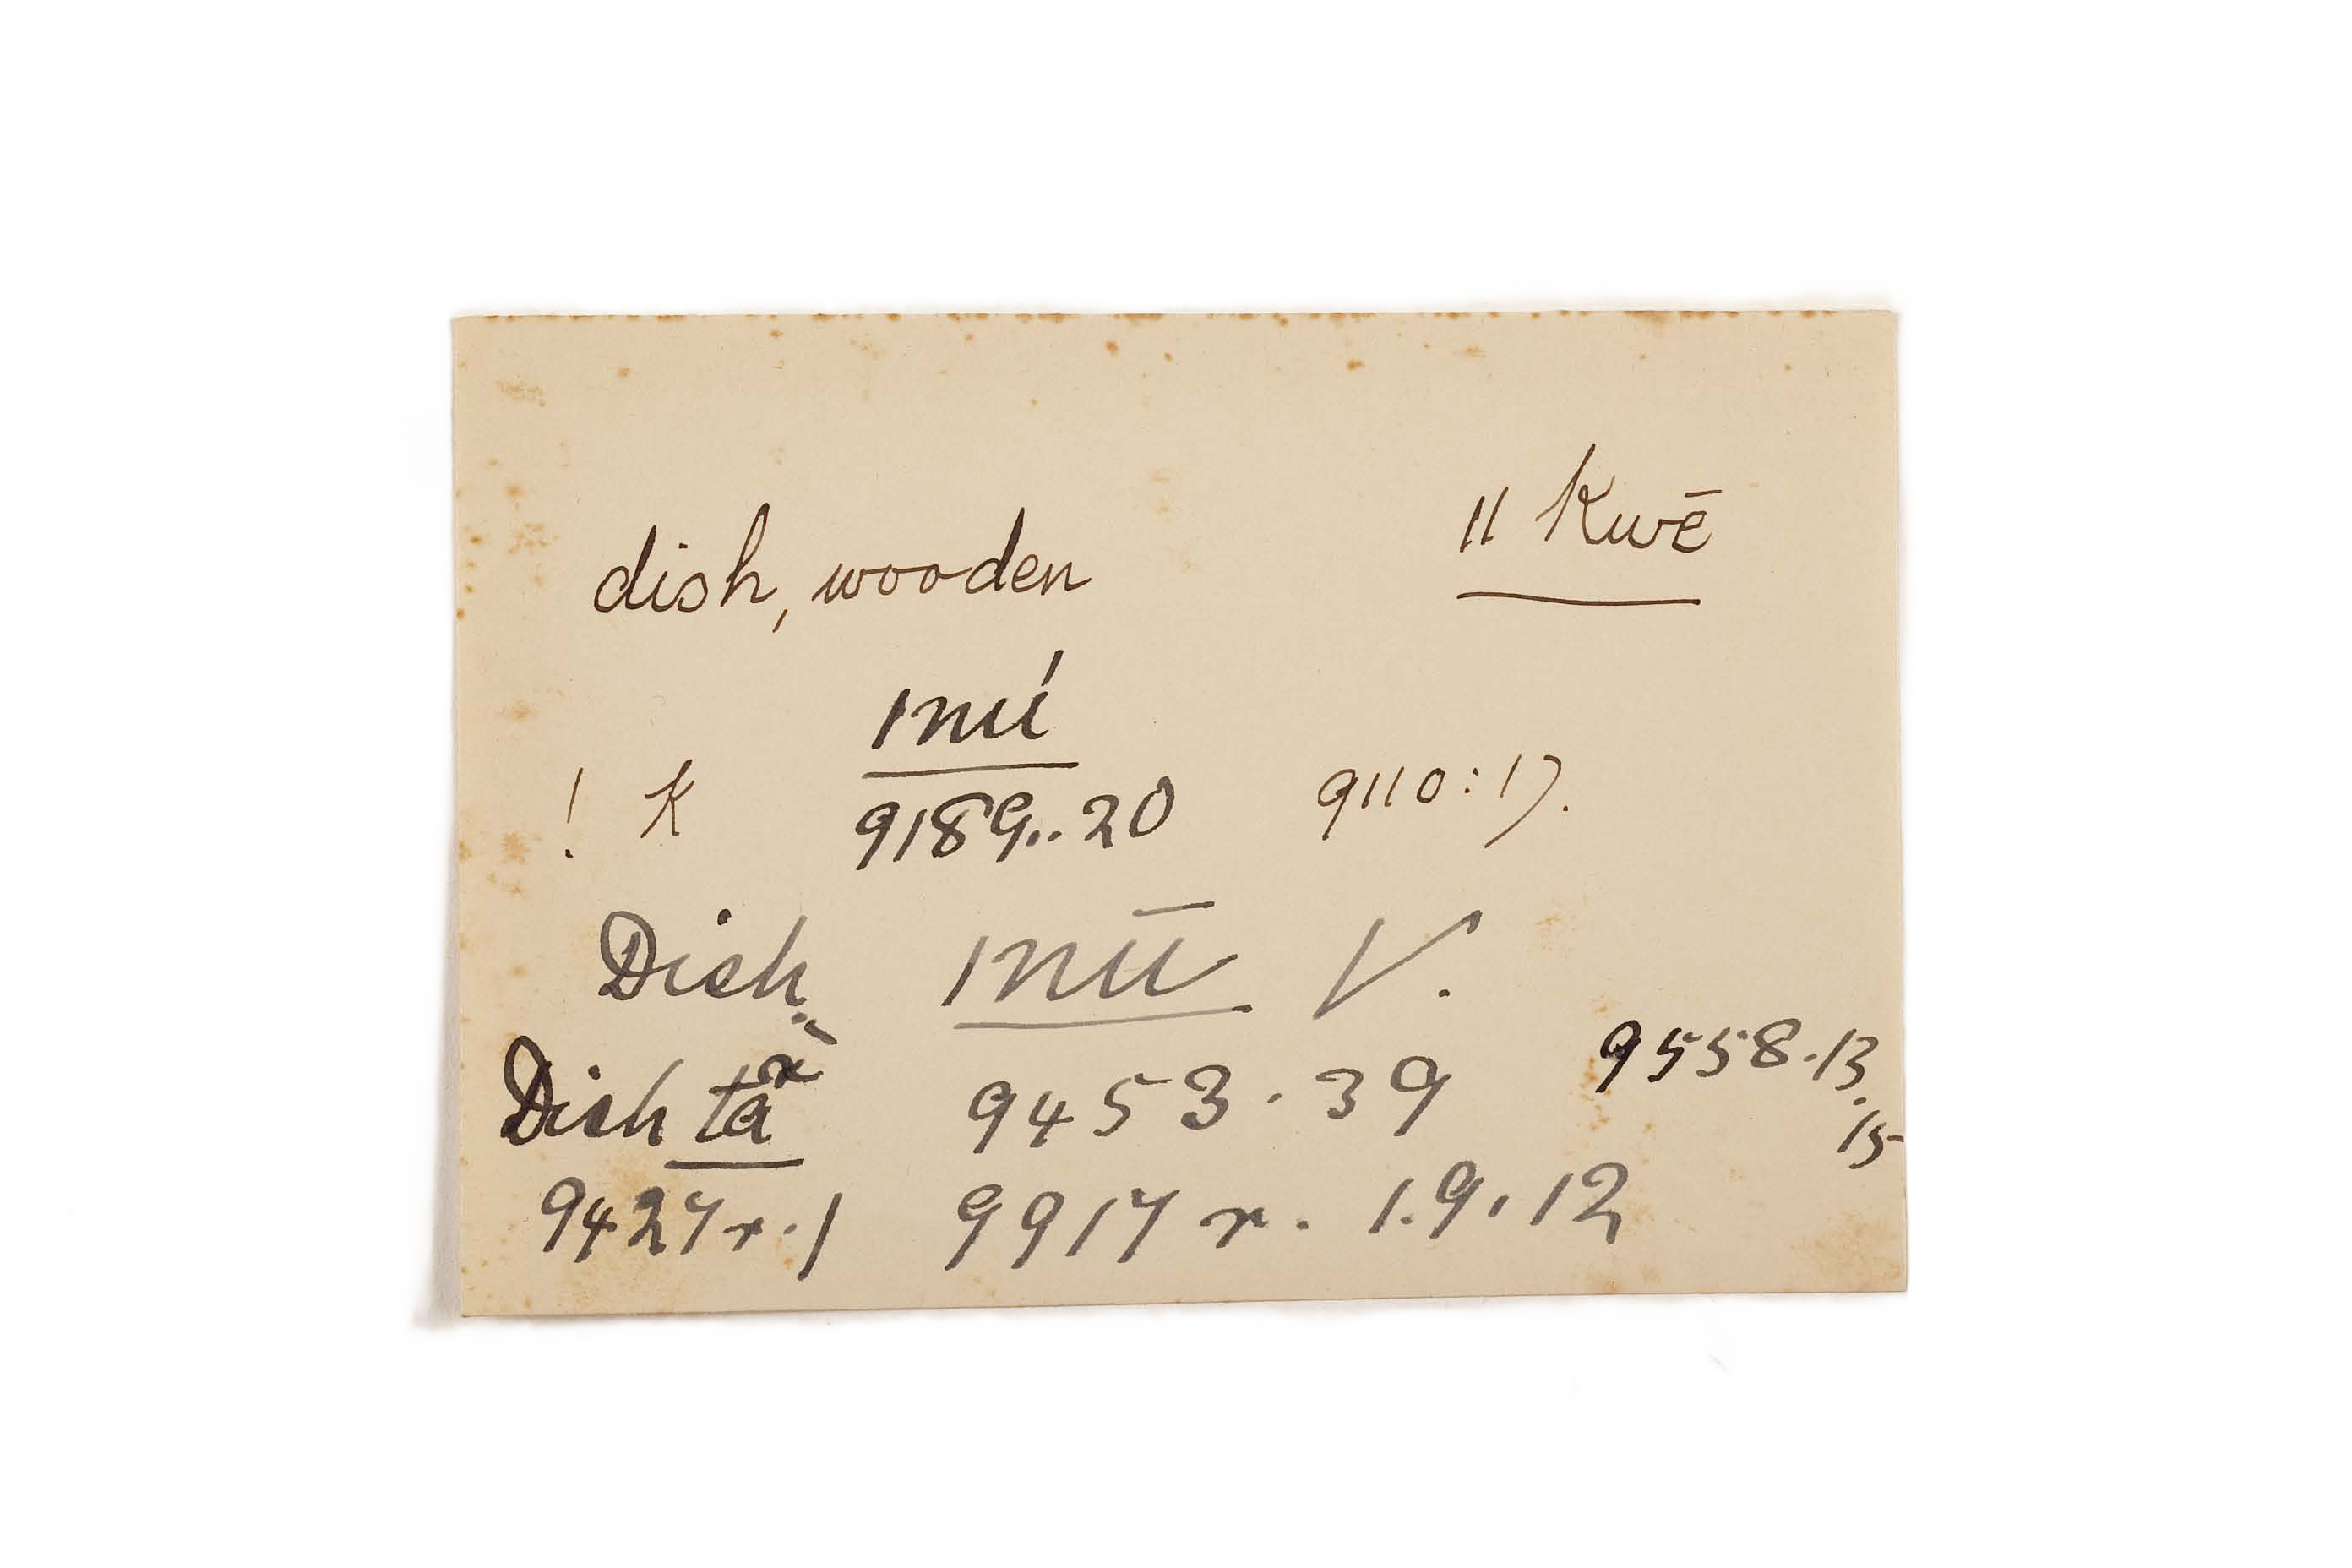 dish, wooden ǁ Kwē
ǀnú
! K 9189..20 9110:17.
Dish. ǀnū V.
Dish tã 9453.39 9558.13.
15
9427 r. 1 9917 r. 1.9.12